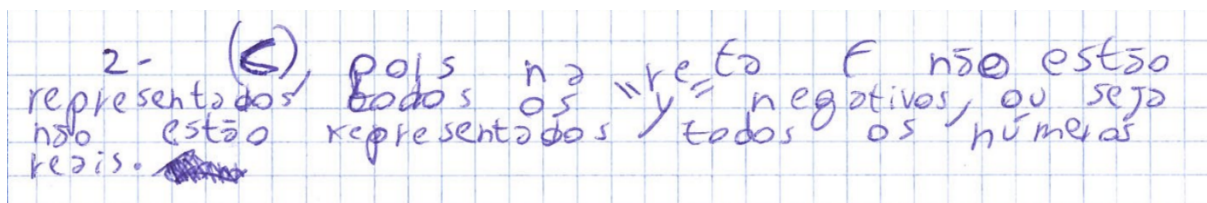 2- (C), pois na reta f não estão
representados todos os "y" negativos, ou seja
não estão representados todos os números
reais.